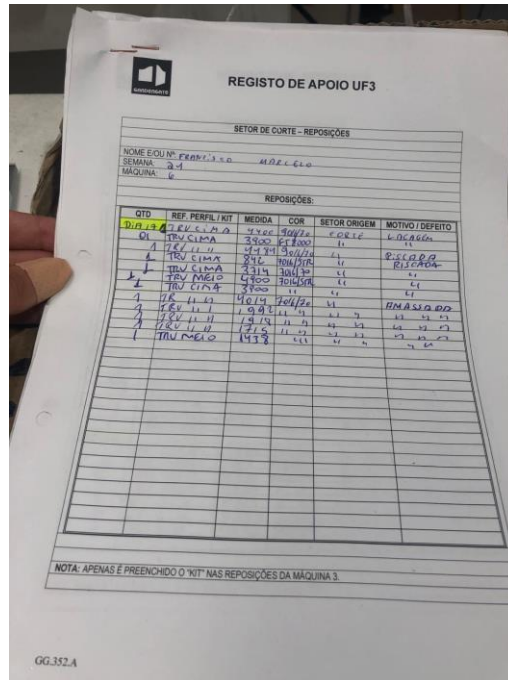 REGISTO DE APOIO UF3
SETOR DE CORTE – REPOSIÇÕES
NOME E/OU Nº FRANCISCO MARCELO
SEMANA: 21
MÁQUINA: 6
REPOSIÇÕES:
QTD REF. PERFIL / KIT MEDIDA COR SETOR ORIGEM MOTIVO / DEFEITO
DiA 17 TRV CIMA 4400 9016/70 CORTE LACAGEM
01 TRV CIMA 3900 " "
1 TRV " " 9016/70 " RISCADA
1 TRV CIMA 842 7016/STR " RISCADA
1 TRV CIMA 3714 7016/70 " "
1 TRV MEIO 4900 7016/STR " "
1 TRV CIMA 3900 " " "
1 TR " " 4014 7016/70 " AMASSADA
1 TRV " " 1992 " " " " " " "
1 TRV " " 1918 " " " " " " "
1 TRV " " 1715 " " " " " " "
1 TRV MEIO 1438 " " " " "
NOTA: APENAS É PREENCHIDO O "KIT" NAS REPOSIÇÕES DA MÁQUINA 3.
GG.352.A